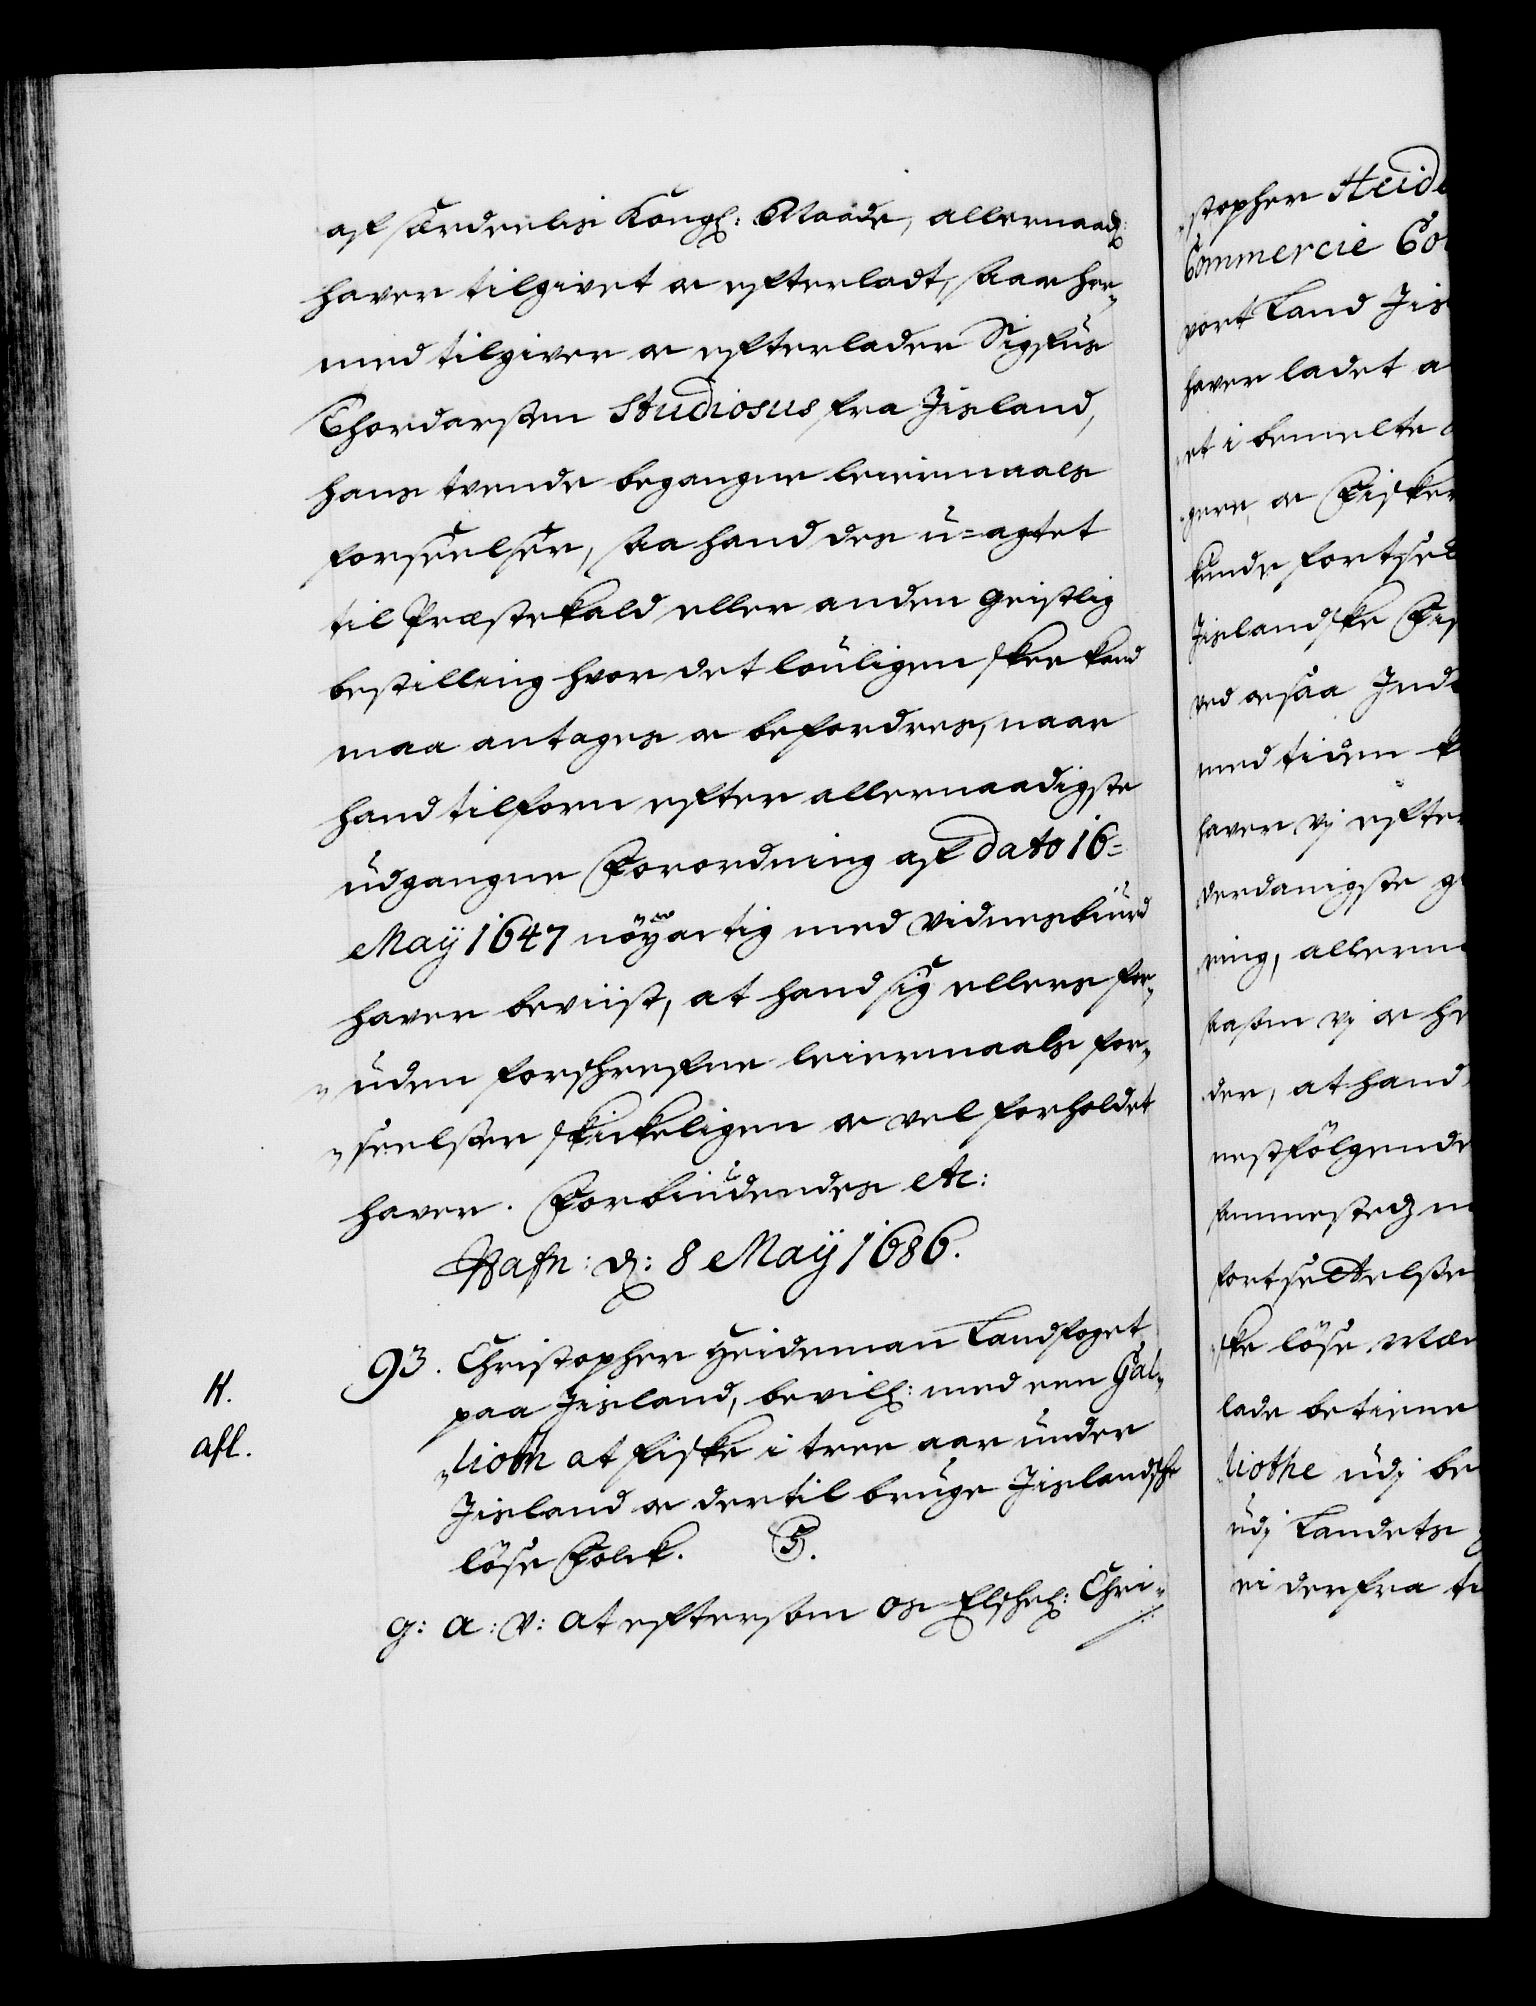 af særdeelis Kongl: Naade, allernaadl:
haver tilgivet oc efterladt, saa oc her„
med tilgiver oc efterlader Sigfus
Thordarssen Studiosus fra Jisland,
hans tvende begangne leiermaals
forseelser, saa hand des u=agtet
til Præstekald eller anden geistlig
bestilling hvor det louligen skee kand
maa antages oc befordres, naar
hand tilforn efter allernaadigste
udgangne Forordning af dato 16=
Maÿ 1647 nöyactig med vidnesbiurd
haver beviist, at hand sig ellers for„
„uden forschrefne leiermaals for„
„seelser skickeligen oc vel forholdet
haver. Forbiudendes etc:
Hafn: d: 8 Maÿ 1686.
93. Christopher Heideman Landfoget
paa Jisland, bevill: med een Gal„
„lioth at fiske i tree aar under
Jisland oc dertil bruge Jislandske
löse Folck. T.
G: A: V: At eftersom os Elschel: Chri„
H.
afl.
„stopher Heide
Commercie Co
vort Land Jis
haver ladet a
et i bemelte
gere, oc Fisker
kunde fortsed
Jislandske Fis
ved ocsaa Ind
med tiden k
haver vj efter
derdanigste
ring, allern
saasom vj oc he
der, at hand
nestfölgende
sammestedz m
fortsettelse
ske löse Mæn
lade betiene
„liothe udj be
udj Landets
ei derfra ti